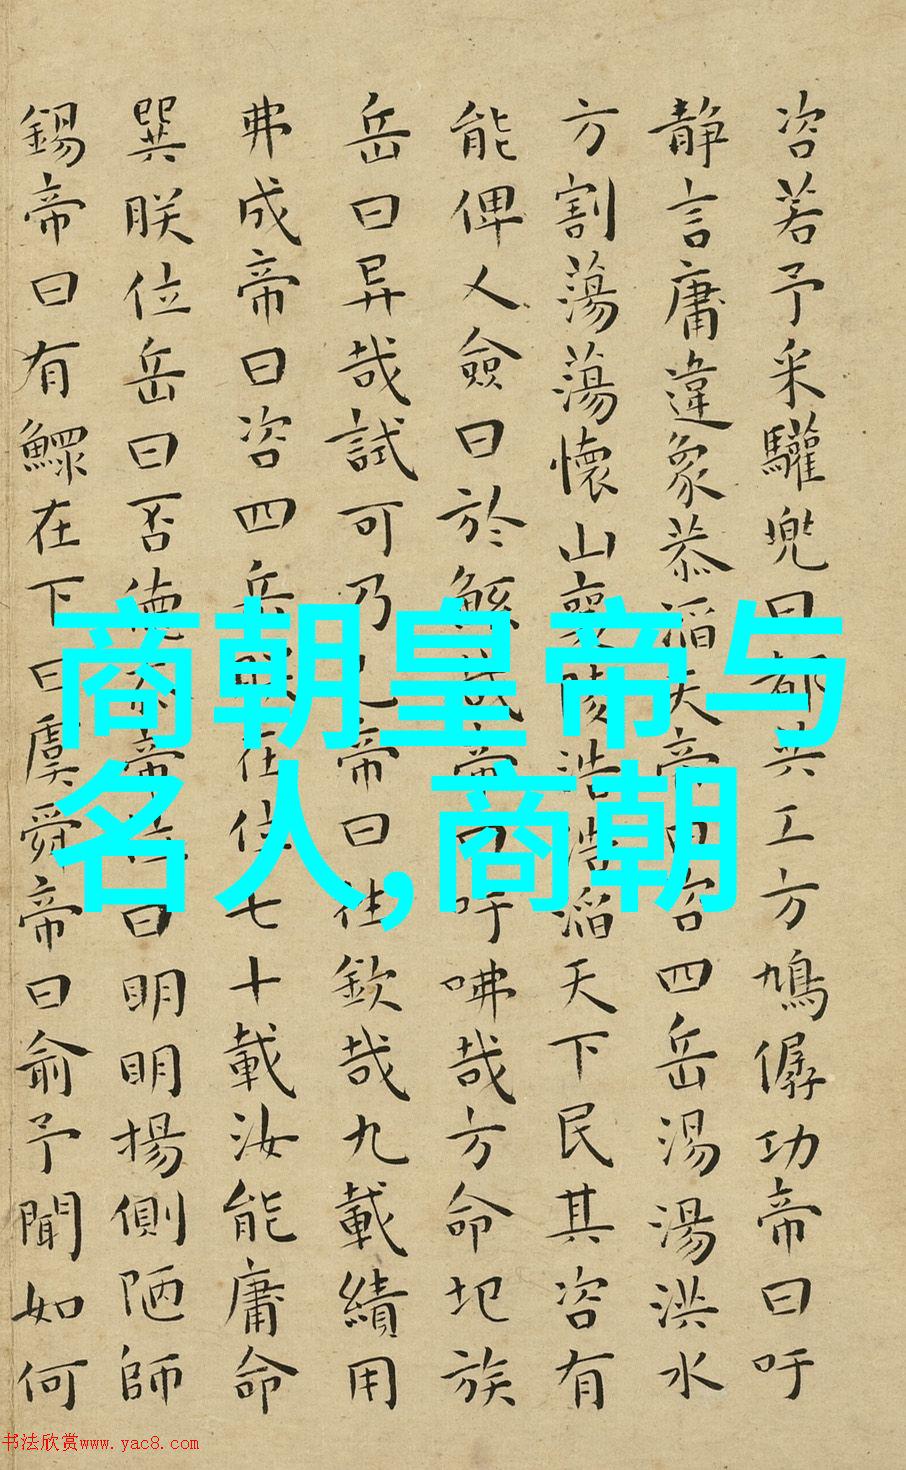 咨若予采驩兜曰都共工方鳩僝功帝曰吁
靜言庸違象恭滔天帝曰咨四岳湯湯洪水
方割蕩蕩懷山襄陵浩浩滔天下民其咨有
能俾乂僉曰於鯀哉帝曰吁咈哉方命圮族
岳曰异哉試可乃已帝曰往欽哉九載績用
弗成帝曰咨四岳朕在位七十載汝能庸命
巽朕位岳曰否德忝帝位曰明明揚側陋師
錫帝曰有鰥在下曰虞舜帝曰俞予聞如何
商朝皇帝与
名人,商朝
书法欣赏www.yac8.com